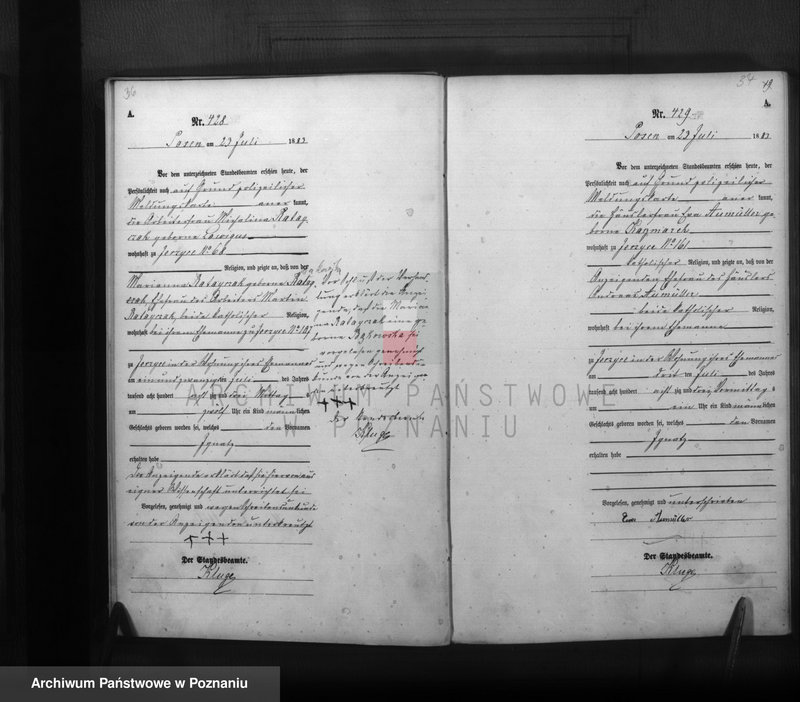 36
A.
Nr. 428
Posen am 23 Juli 1883
Vor dem unterzeichneten Standesbeamten erschien heute, der
Persönlichkeit nach auf Grund polizeilicher
Meldungskarte aner kannt,
die Arbeiterfrau Michalina Ratay
czak geborne
wohnhaft zu Jerzyce No 68
Religion, und zeigte an, daß von der
Marianna Ratayczak geborne Ratay
czak Ehefrau des Arbeiters Martin
Ratayczak, beide katholischer Religion,
wohnhaft bei ihrem Ehemanne zu Jerzyce No 107
zu Jerzyce in der Wohnung ihres Ehemannes
am einundzwanzigsten Juli des Jahres
tausend acht hundert acht zig und drei Mittag s
um zwölf Uhr ein Kind männ lichen
Geschlechts geboren worden sei, welches den Vornamen
Ignatz
erhalten habe
Die Anzeigende erklärt daß sie hiervon aus
eigner Wissenschaft unterrichtet sei
Vorgelesen, genehmigt und wegen Schreibensunkunde
von der Anzeigenden unterkreuzt
+++
Der Standesbeamte.
Kluge
Vor Schluß der Verhand
lung erklärt die Anzei
gende, daß die Maria
na Ratayczak eine ge
borne Bąkowska sei
vorgelesen genehmigt
und wegen Schreibensun
kunde von der Anzeigen
den unterkreuzt
+++
Der Standesbeamte
Kluge
37
49
A.
Nr. 429
Posen am 23 Juli 1883
Vor dem unterzeichneten Standesbeamten erschien heute, der
Persönlichkeit nach auf Grund polizeilicher
Meldungskarte aner kannt,
die Händlerfrau Eva Aumüller ge
borne Kazmarek
wohnhaft zu Jerzyce No 161
katholischer Religion, und zeigte an, daß von der
Anzeigenden Ehefrau des Händlers
Andreas Aumüller
beide katholischer Religion,
wohnhaft bei ihrem Ehemanne
zu Jerzyce in der Wohnung ihres Ehemannes
am Juli des Jahres
tausend acht hundert acht zig und drei Vormittag s
um ein Uhr ein Kind männ lichen
Geschlechts geboren worden sei, welches den Vornamen
Ignatz
erhalten habe
Vorgelesen, genehmigt und unterschrieben
Eva Aumüller
Der Standesbeamte.
Kluge
ARCHIWUM PAŃSTWOWE
W POZNANIU
Archiwum Państwowe w Poznaniu